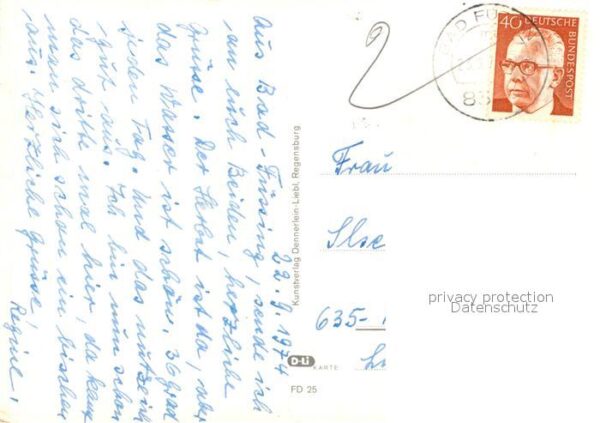 22.9.1974
Aus Bad-Füssing, sende ich
an euch Beiden, herzliche
Grüße. Der Herbst ist da, aber
das Wasser ist schön. 36 grad
jeden Tag. Und das nützt ich
gut aus. Ich bin nun schon
das dritte mal hier, da kann
man sich schon ein bischen
aus. Herzliche Grüsse!
Regine!
Kunstverlag Dennerlein-Liebl, Regensburg
D-Li
KARTE
FD 25
40 DEUTSCHE
BUNDESPOST
BAD FÜ
Frau
Ilse
635-
privacy protection
Datenschutz